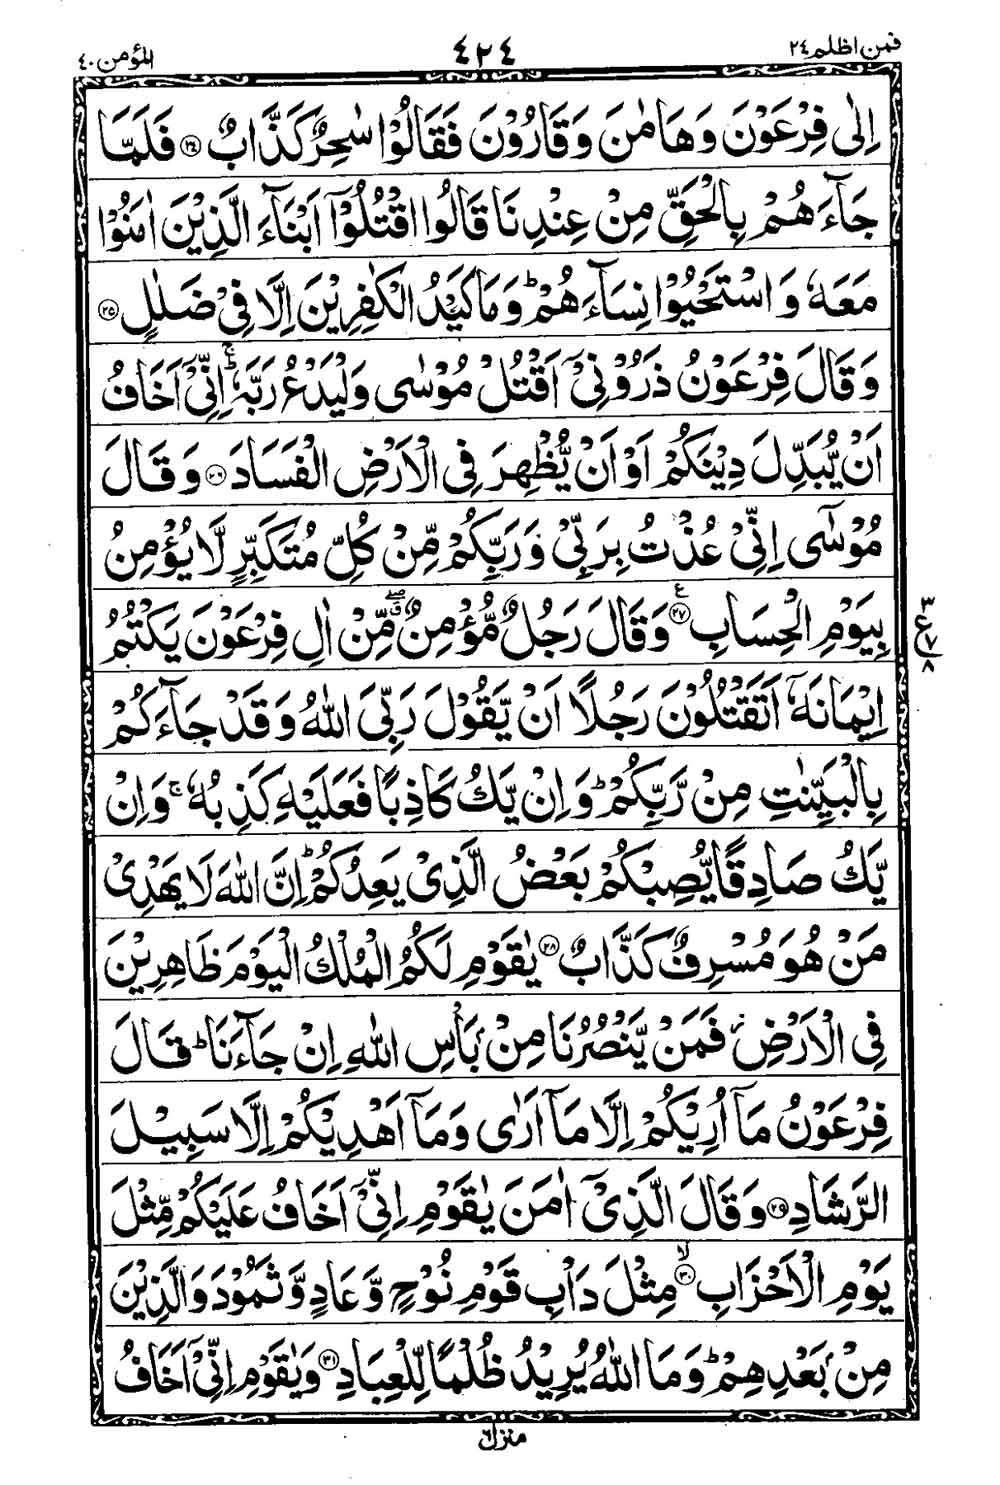 فمن اظلم ٢٤ ٤٢٤ المؤمن ٤٠
اِلٰی فِرْعَوْنَ وَهَامٰنَ وَقَارُوْنَ فَقَالُوْا سٰحِرٌ كَذَّابٌ ﴿۲۴﴾ فَلَمَّا
جَآءَهُمْ بِالْحَقِّ مِنْ عِنْدِنَا قَالُوا اقْتُلُوْۤا اَبْنَآءَ الَّذِیْنَ اٰمَنُوْا
مَعَهٗ وَاسْتَحْیُوْا نِسَآءَهُمْ ؕ وَمَا كَیْدُ الْكٰفِرِیْنَ اِلَّا فِیْ ضَلٰلٍ ﴿۲۵﴾
وَقَالَ فِرْعَوْنُ ذَرُوْنِیْۤ اَقْتُلْ مُوْسٰی وَلْیَدْعُ رَبَّهٗ ۚ اِنِّیْۤ اَخَافُ
اَنْ یُّبَدِّلَ دِیْنَكُمْ اَوْ اَنْ یُّظْهِرَ فِی الْاَرْضِ الْفَسَادَ ﴿۲۶﴾ وَقَالَ
مُوْسٰۤی اِنِّیْ عُذْتُ بِرَبِّیْ وَرَبِّكُمْ مِّنْ كُلِّ مُتَكَبِّرٍ لَّا یُؤْمِنُ
بِیَوْمِ الْحِسَابِ ﴿۲۷﴾ ع وَقَالَ رَجُلٌ مُّؤْمِنٌ ۖۗ مِّنْ اٰلِ فِرْعَوْنَ یَكْتُمُ
اِیْمَانَهٗۤ اَتَقْتُلُوْنَ رَجُلًا اَنْ یَّقُوْلَ رَبِّیَ اللّٰهُ وَقَدْ جَآءَكُمْ
بِالْبَیِّنٰتِ مِنْ رَّبِّكُمْ ؕ وَاِنْ یَّكُ كَاذِبًا فَعَلَیْهِ كَذِبُهٗ ۚ وَاِنْ
یَّكُ صَادِقًا یُّصِبْكُمْ بَعْضُ الَّذِیْ یَعِدُكُمْ ؕ اِنَّ اللّٰهَ لَا یَهْدِیْ
مَنْ هُوَ مُسْرِفٌ كَذَّابٌ ﴿۲۸﴾ یٰقَوْمِ لَكُمُ الْمُلْكُ الْیَوْمَ ظَاهِرِیْنَ
فِی الْاَرْضِ ؗ فَمَنْ یَّنْصُرُنَا مِنْۢ بَاْسِ اللّٰهِ اِنْ جَآءَنَا ؕ قَالَ
فِرْعَوْنُ مَاۤ اُرِیْكُمْ اِلَّا مَاۤ اَرٰی وَمَاۤ اَهْدِیْكُمْ اِلَّا سَبِیْلَ
الرَّشَادِ ﴿۲۹﴾ وَقَالَ الَّذِیْۤ اٰمَنَ یٰقَوْمِ اِنِّیْۤ اَخَافُ عَلَیْكُمْ مِّثْلَ
یَوْمِ الْاَحْزَابِ ﴿۳۰﴾ ۙ مِثْلَ دَاْبِ قَوْمِ نُوْحٍ وَّعَادٍ وَّثَمُوْدَ وَالَّذِیْنَ
مِنْۢ بَعْدِهِمْ ؕ وَمَا اللّٰهُ یُرِیْدُ ظُلْمًا لِّلْعِبَادِ ﴿۳۱﴾ وَیٰقَوْمِ اِنِّیْۤ اَخَافُ
منزل ٦